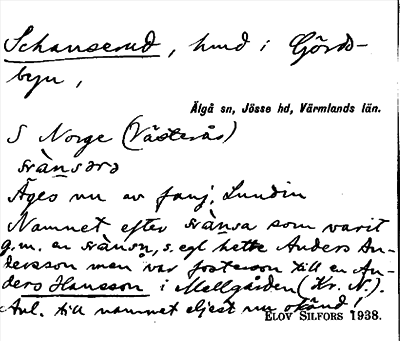 Schanserud, hmd i Görds-
byn,
Älgå sn, Jösse hd, Värmlands län.
S Norge (Västerås)
srànsərə
Äges nu av fanj. Lundin
Namnet efter srànsa som varit
g.m. en srànsn, s. egl. hette Anders An-
dersson men var fosterson till en An-
ders Hansson i Mellgården (Kr. N).
Anl. till namnet eljest nu okänd!
ELOV SILFORS 1938.